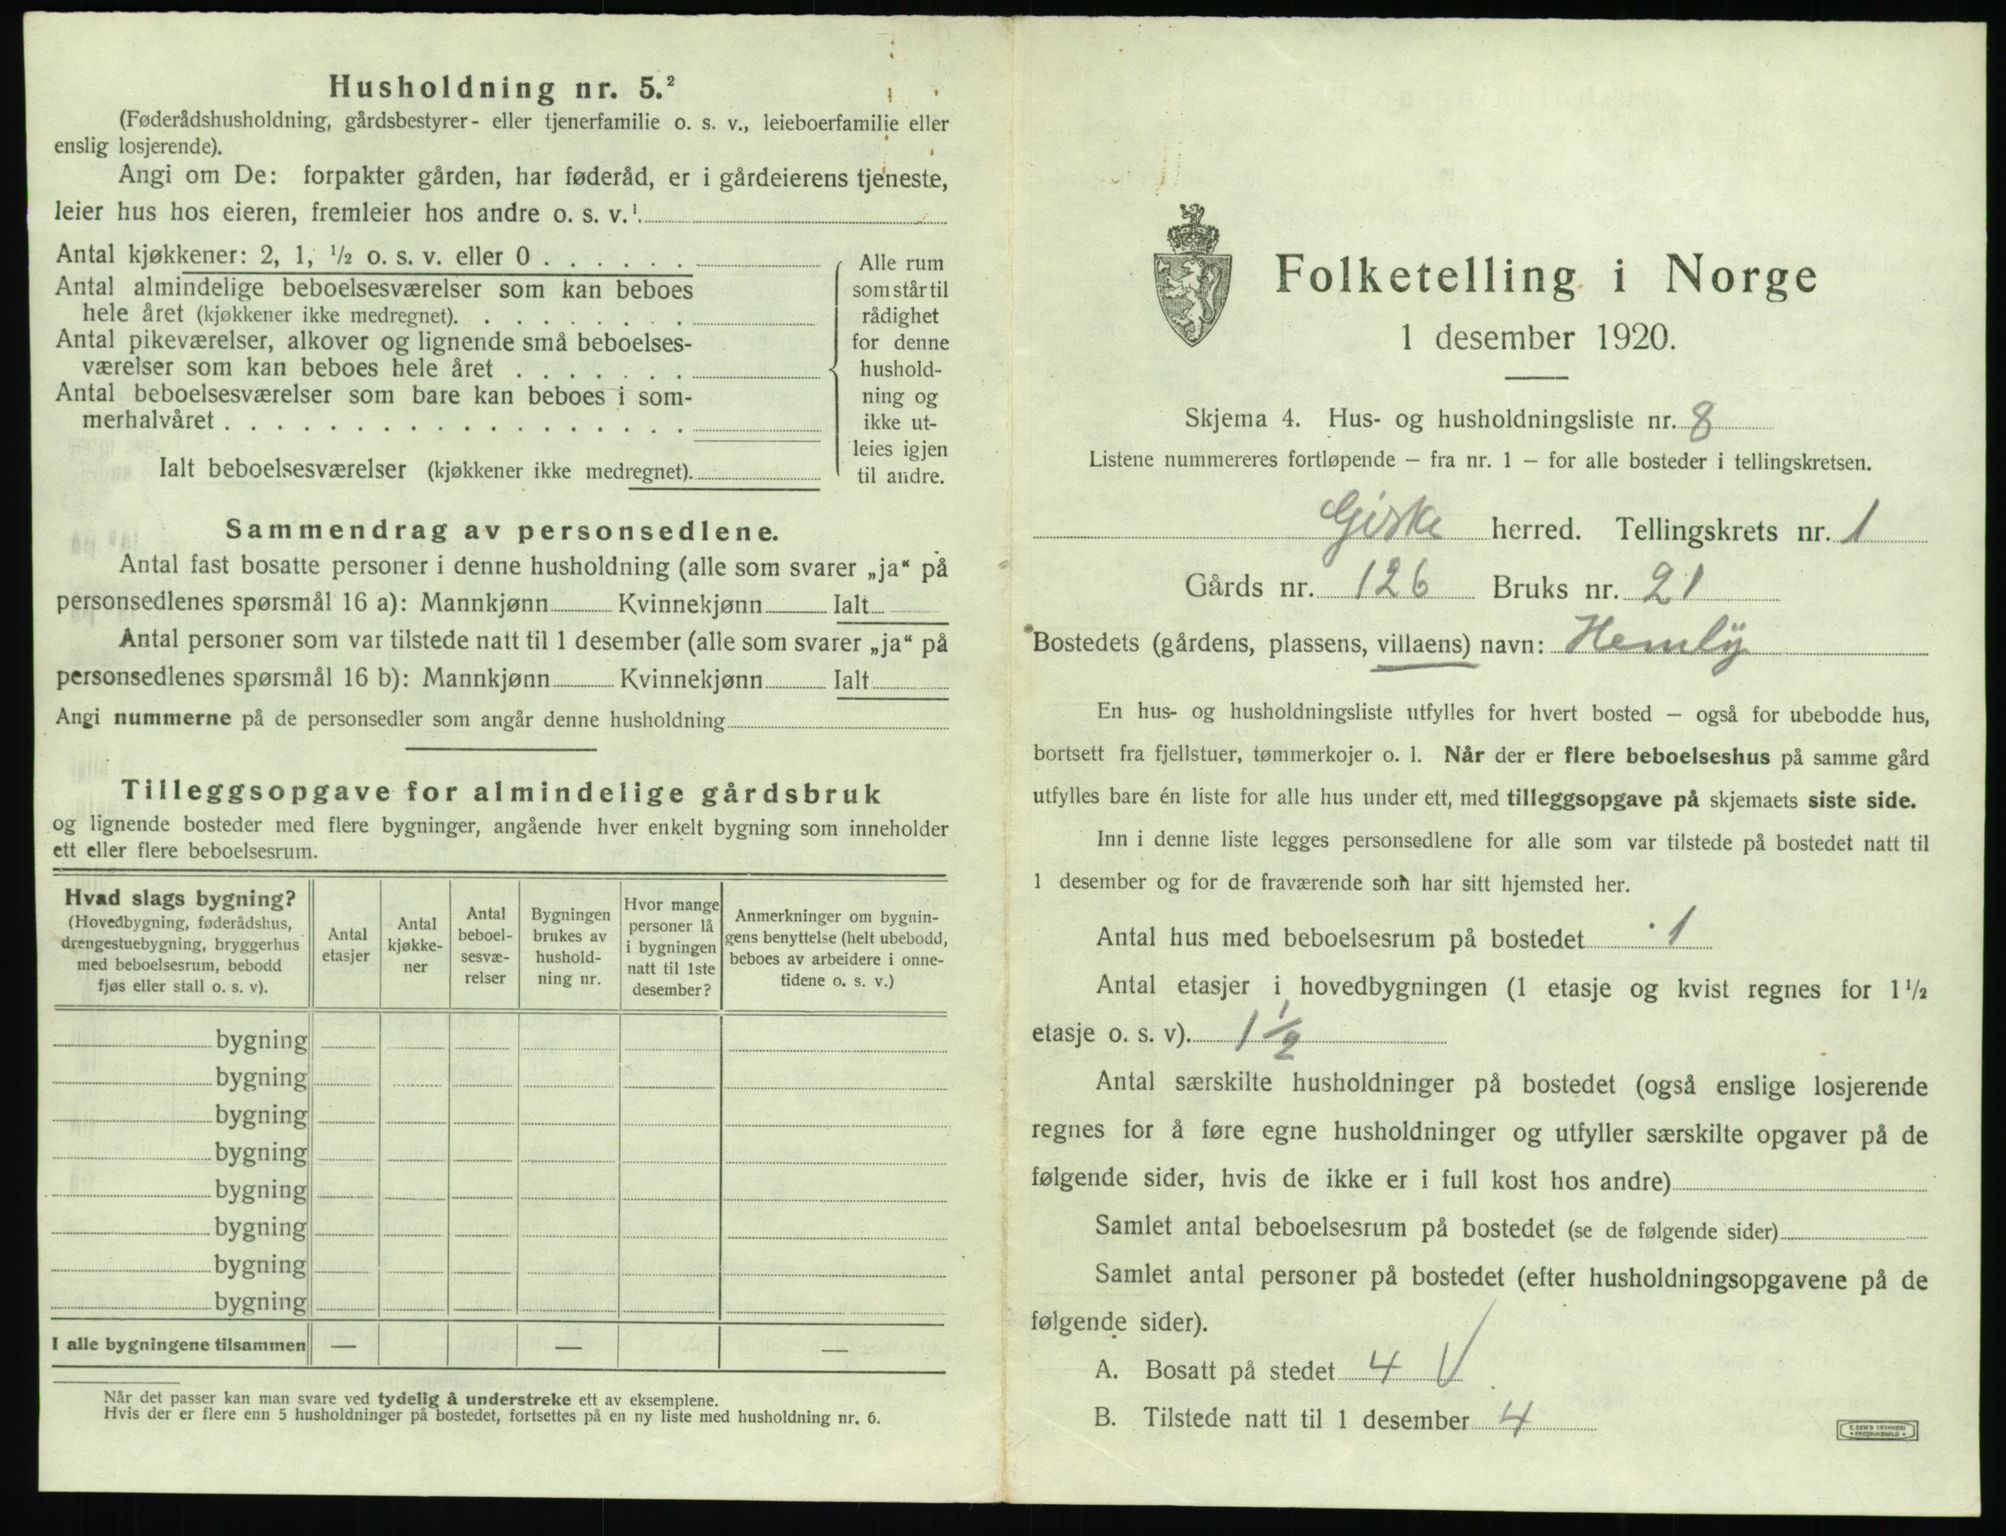 Husholdning nr. 5.²
(Føderådshusholdning, gårdsbestyrer- eller tjenerfamilie o. s. v., leieboerfamilie eller
enslig losjerende).
Angi om De: forpakter gården, har føderåd, er i gårdeierens tjeneste,
leier hus hos eieren, fremleier hos andre o. s. v.¹
Antal kjøkkener: 2, 1, ½ o. s. v. eller 0
Antal almindelige beboelsesværelser som kan beboes
hele året (kjøkkener ikke medregnet).
Antal pikeværelser, alkover og lignende små beboelses-
værelser som kan beboes hele året
Antal beboelsesværelser som bare kan beboes i som-
merhalvåret
Ialt beboelsesværelser (kjøkkener ikke medregnet).
Alle rum
som står til
rådighet
for denne
hushold-
ning og
ikke ut-
leies igjen
til andre.
Sammendrag av personsedlene.
Antal fast bosatte personer i denne husholdning (alle som svarer „ja“ på
personsedlenes spørsmål 16 a): Mannkjønn Kvinnekjønn Ialt
Antal personer som var tilstede natt til 1 desember (alle som svarer „ja“ på
personsedlenes spørsmål 16 b): Mannkjønn Kvinnekjønn Ialt
Angi nummerne på de personsedler som angår denne husholdning
Tilleggsopgave for almindelige gårdsbruk
og lignende bosteder med flere bygninger, angående hver enkelt bygning som inneholder
ett eller flere beboelsesrum.
Hvad slags bygning?
(Hovedbygning, føderådshus,
drengestuebygning, bryggerhus
med beboelsesrum, bebodd
fjøs eller stall o. s. v).
Antal
etasjer
Antal
kjøkke-
ner
Antal
beboel-
sesvæ-
relser
Bygningen
brukes av
hushold-
ning nr.
Hvor mange
personer lå
i bygningen
natt til 1ste
desember?
Anmerkninger om bygnin-
gens benyttelse (helt ubebodd,
beboes av arbeidere i onne-
tidene o. s. v.)
bygning
bygning
bygning
bygning
bygning
bygning
bygning
bygning
I alle bygningene tilsammen — — —
Når det passer kan man svare ved tydelig å understreke ett av eksemplene.
Hvis der er flere enn 5 husholdninger på bostedet, fortsettes på en ny liste med husholdning nr. 6.
Folketelling i Norge
1 desember 1920.
Skjema 4. Hus- og husholdningsliste nr. 8
Listene nummereres fortløpende – fra nr. 1 – for alle bosteder i tellingskretsen.
Giske herred. Tellingskrets nr. 1
Gårds nr. 126 Bruks nr. 21
Bostedets (gårdens, plassens, villaens) navn: Hemly
En hus- og husholdningsliste utfylles for hvert bosted – også for ubebodde hus,
bortsett fra fjellstuer, tømmerkojer o. l. Når der er flere beboelseshus på samme gård
utfylles bare én liste for alle hus under ett, med tilleggsopgave på skjemaets siste side.
Inn i denne liste legges personsedlene for alle som var tilstede på bostedet natt til
1 desember og for de fraværende som har sitt hjemsted her.
Antal hus med beboelsesrum på bostedet 1
Antal etasjer i hovedbygningen (1 etasje og kvist regnes for 1½
etasje o. s. v). 1 ½
Antal særskilte husholdninger på bostedet (også enslige losjerende
regnes for å føre egne husholdninger og utfyller særskilte opgaver på de
følgende sider, hvis de ikke er i full kost hos andre)
Samlet antal beboelsesrum på bostedet (se de følgende sider)
Samlet antal personer på bostedet (efter husholdningsopgavene på de
følgende sider).
A. Bosatt på stedet 4 V
B. Tilstede natt til 1 desember 4